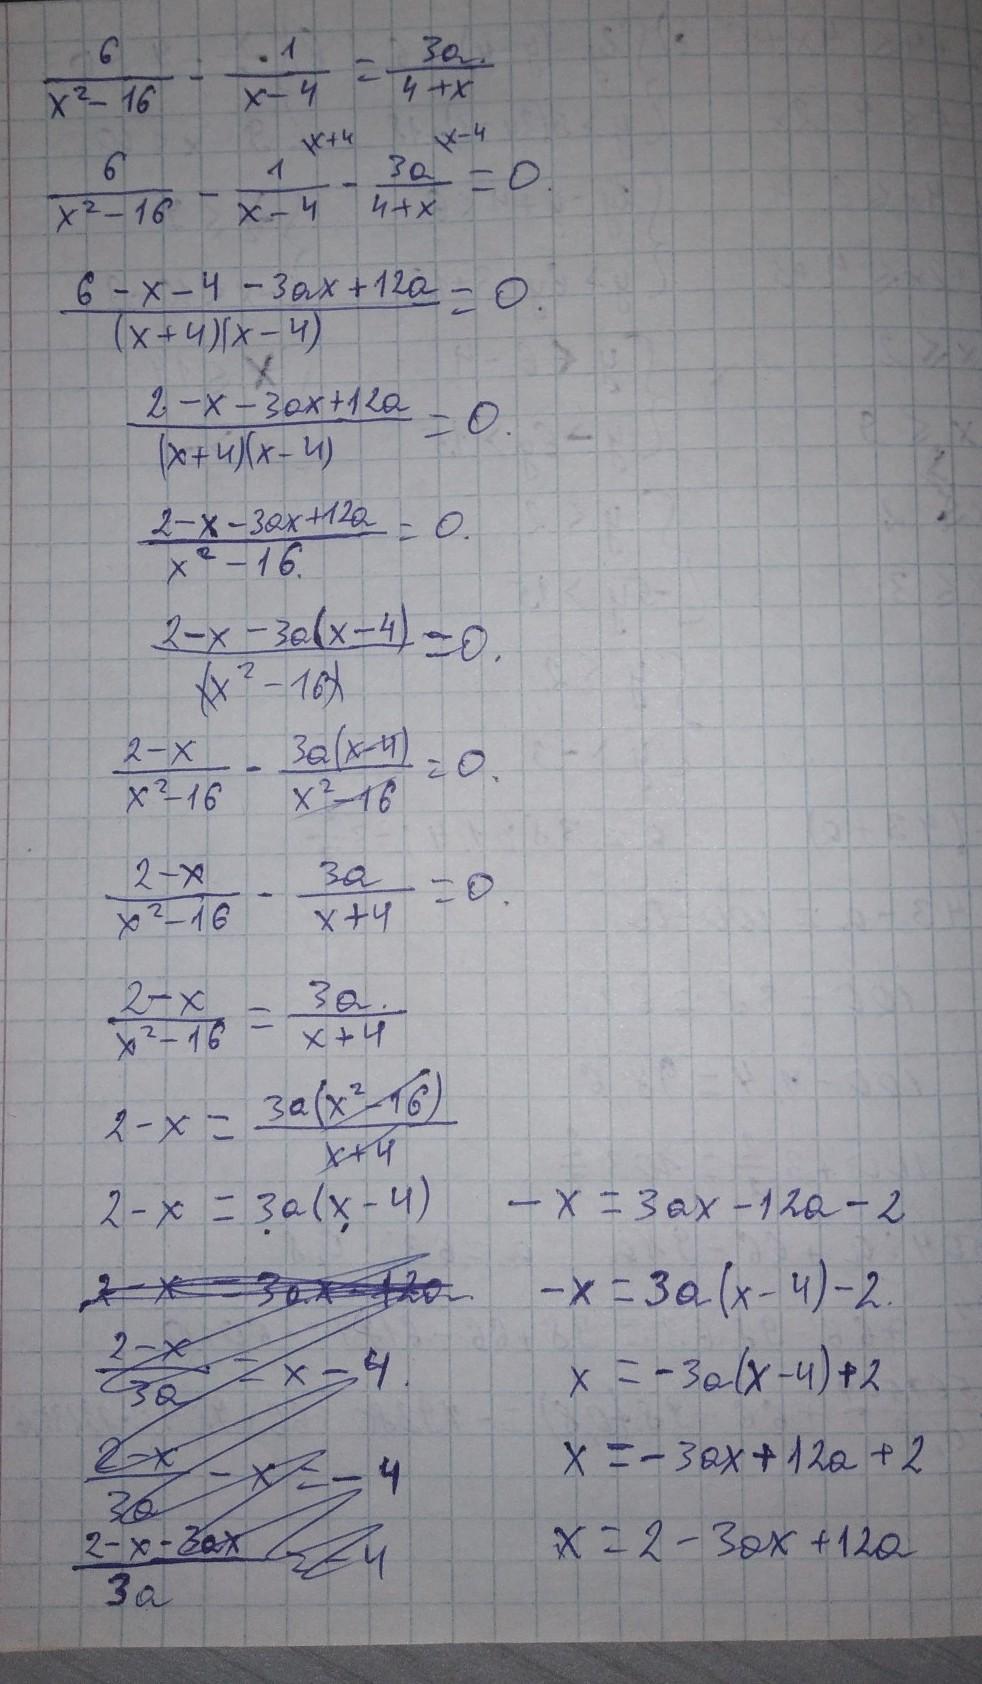 6/(x²-16) - 1/(x-4) = 3a/(4+x)
6/(x²-16) - 1/(x-4) ^(x+4) - 3a/(4+x) ^(x-4) = 0.
(6-x-4-3ax+12a)/((x+4)(x-4)) = 0.
x
(2-x-3ax+12a)/((x+4)(x-4)) = 0.
(2-x-3ax+12a)/(x²-16.) = 0.
(2-x-3a(x-4))/(x²-16) = 0.
(2-x)/(x²-16) - 3a(x-4)/(x²-16) = 0.
(2-x)/(x²-16) - 3a/(x+4) = 0.
(2-x)/(x²-16) = 3a./(x+4)
2-x = 3a(x²-16)/(x+4)
2-x = 3a(x-4)
2-x = 3ax-12a
(2-x)/3a = x-4.
(2-x)/3a - x = -4
(2-x-3ax)/3a = -4
-x = 3ax-12a-2
-x = 3a(x-4)-2.
x = -3a(x-4)+2
x = -3ax+12a+2
x = 2-3ax+12a